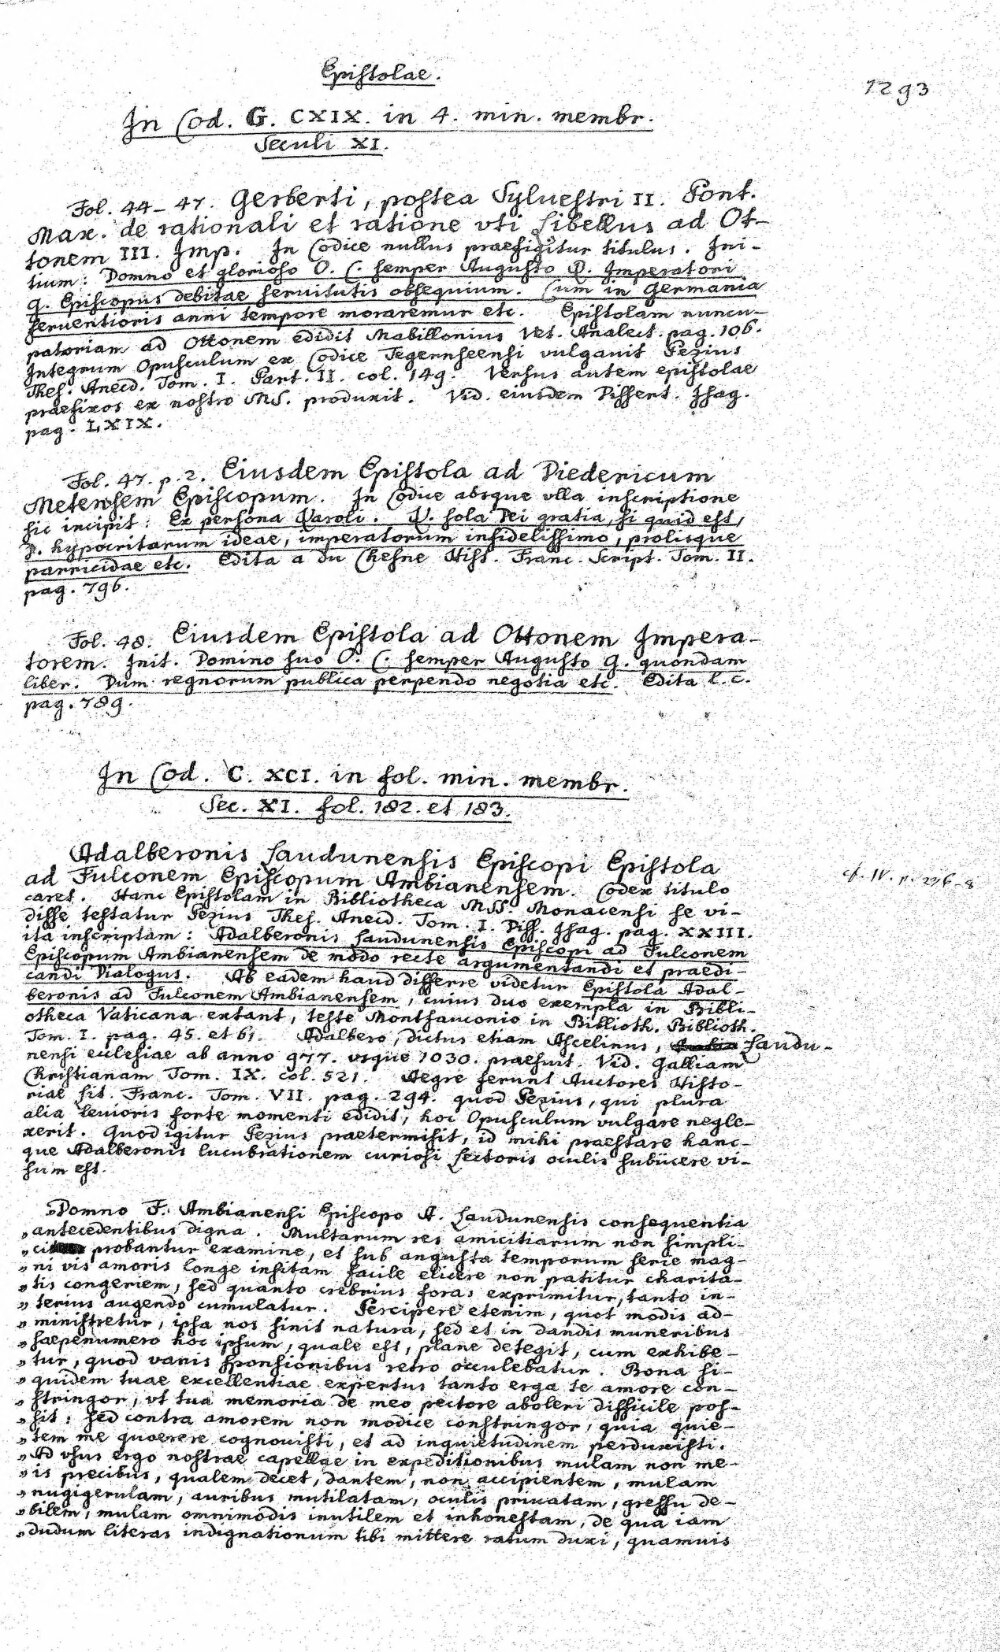 Epistolae.
1293
In Cod. G. CXIX. in 4. min. membr.
Seculi XI.
Fol. 44–47. Gerberti, postea Sylvestri II. Pont.
Max. de rationali et ratione vti Libellus ad Ot-
tonem III. Imp. In Codice nullus praefigitur titulus. Ini-
tium: Domno et glorioso O. C. semper Augusto R. Imperatori
G. Episcopus debitae servitutis obsequium. Cum in Germania
ferventioris anni tempore moraremur etc. Epistolam nuncu-
patoriam ad Ottonem edidit Mabillonius Vet. Analect. pag. 106.
Integrum Opusculum ex Codice Tegernseensi vulgavit Pezius
Thes. Anecd. Tom. I. Part. II. col. 149. Versus autem epistolae
praefixos ex nostro MS. produxit. Vid. eiusdem Dissert. Isag.
pag. LXIX.
Fol. 47. p. 2. Eiusdem Epistola ad Diedericum
Metensem Episcopum. In Codice absque vlla inscriptione
sic incipit: Ex persona Karoli. K. sola Dei gratia, si quid est,
D. hypocritarum ideae, imperatorum infidelissimo, prolisque
parricidae etc. Edita a du Chesne Hist. Franc. Script. Tom. II.
pag. 796.
Fol. 48. Eiusdem Epistola ad Ottonem Impera-
torem. Init. Domino suo O. C. semper Augusto G. quondam
liber. Dum regnorum publica perpendo negotia etc. Edita l. c.
pag. 789.
In Cod. C. XCI. in fol. min. membr.
Sec. XI. fol. 182. et 183.
Adalberonis Laudunensis Episcopi Epistola
ad Fulconem Episcopum Ambianensem. Codex titulo
cf. IV. p. 296-8
caret. Hanc Epistolam in Bibliotheca MSS. Monacensi se vi-
disse testatur Pezius Thes. Anecd. Tom. I. Diss. Isag. pag. XXIII.
ita inscriptam: Adalberonis Laudunensis Episcopi ad Fulconem
Episcopum Ambianensem de modo recte argumentandi et praedi-
candi Dialogus. Ab eadem haud differre videtur Epistola Adal-
beronis ad Fulconem Ambianensem, cuius duo exempla in Bibli-
otheca Vaticana extant, teste Montfauconio in Biblioth. Biblioth.
Tom. I. pag. 45. et 61. Adalbero, dictus etiam Ascelinus, Laudu-
nensi ecclesiae ab anno 977. vsque 1030. praefuit. Vid. Galliam
Christianam Tom. IX. col. 521. Aegre ferunt Auctores Histo-
riae lit. Franc. Tom. VII. pag. 294. quod Pezius, qui plura
alia levioris forte momenti edidit, hoc Opusculum vulgare negle-
xerit. Quod igitur Pezius praetermisit, id mihi praestare hanc-
que Adalberonis lucubrationem curiosi Lectoris oculis subiicere vi-
sum est.
„Domno F. Ambianensi Episcopo A. Laudunensis consequentia
„antecedentibus digna. Multarum res amicitiarum non simpli-
„ci probantur examine, et sub angusta temporum serie mag-
„ni vis amoris longe insitam facile elicere non patitur charita-
„tis congeriem, sed quanto crebrius foras exprimitur, tanto in-
„terius augendo cumulatur. Percipere etenim, quot modis ad-
„ministretur, ipsa nos sinit natura, sed et in dandis muneribus
„saepenumero hoc ipsum, quale est, plane detegit, cum exhibe-
„tur, quod vanis sponsionibus retro occulebatur. Bona si-
„quidem tuae excellentiae expertus tanto erga te amore con-
„stringor, vt tua memoria de meo pectore aboleri difficile pos-
„sit: sed contra amorem non modice constringor, quia quie-
„tem me quaerere cognovisti, et ad inquietudinem perduxisti.
„Ad vsus ergo nostrae capellae in expeditionibus mulam non me-
„is precibus, qualem decet, dantem, non accipientem, mulam
„nugigerulam, auribus mutilatam, oculis privatam, gressu de-
„bilem, mulam omnimodis inutilem et inhonestam, de qua iam
„dudum literas indignationum tibi mittere ratum duxi, quamvis